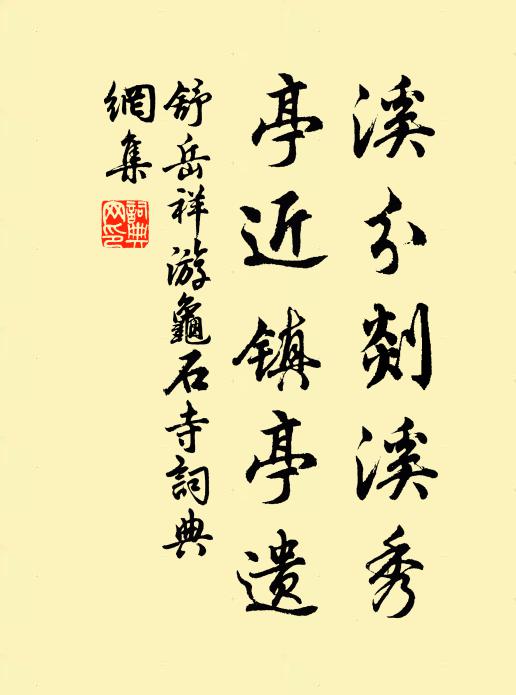 溪分剡溪秀
亭近镇亭遗
舒岳祥游龜石寺詞典
網集
詞典網印